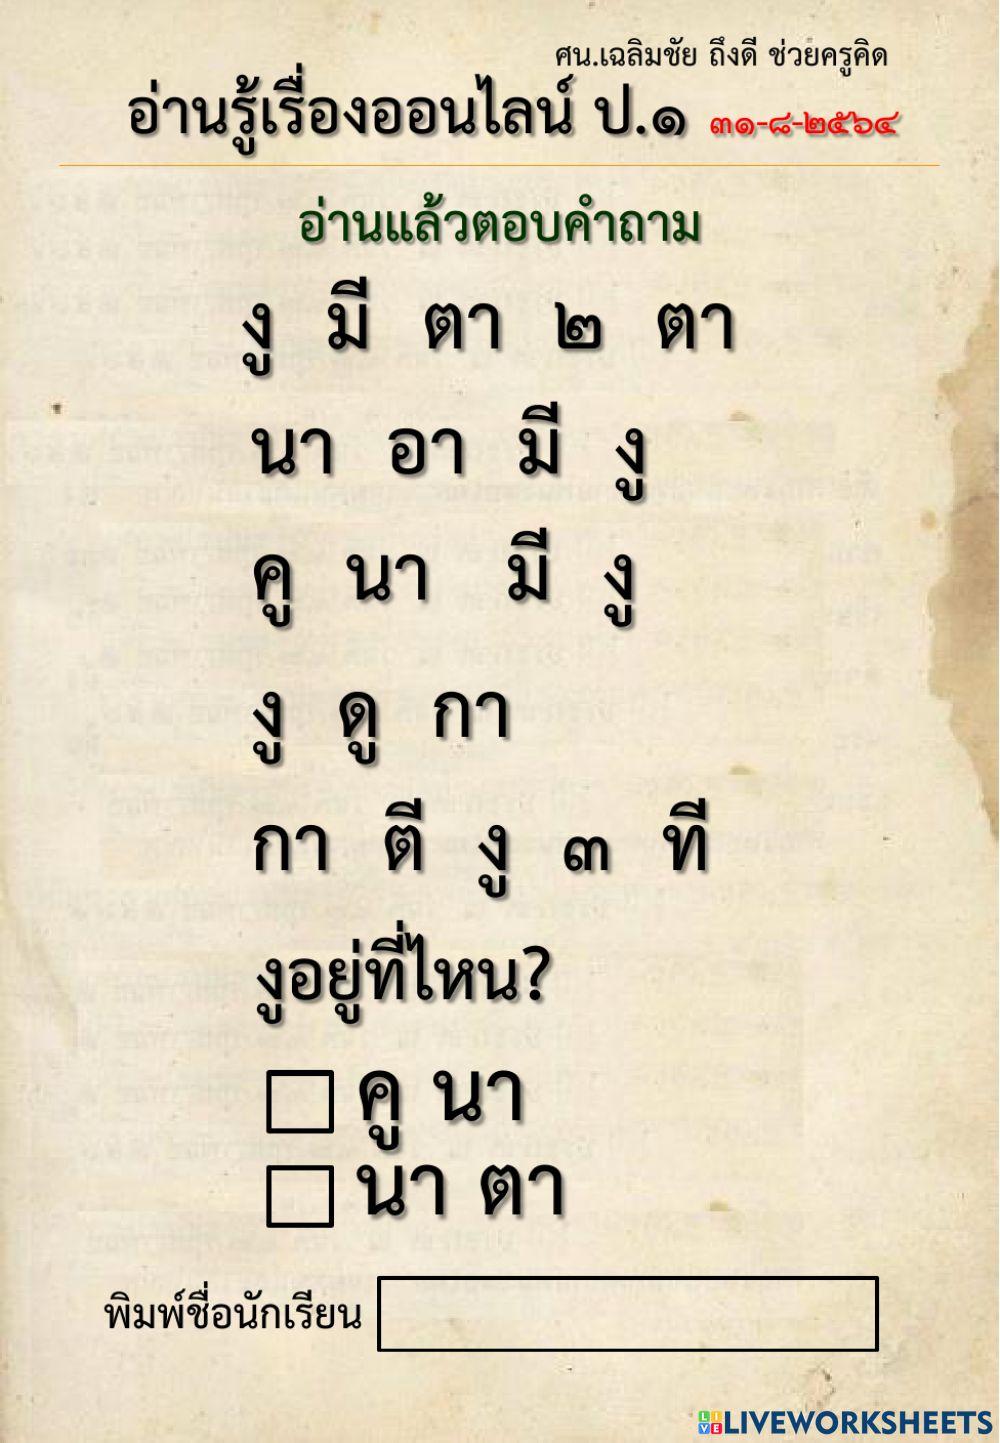 ศน.เฉลิมชัย ถึงดี ช่วยครูคิด
อ่านรู้เรื่องออนไลน์ ป.๑ ๓๑-๘-๒๕๖๔
อ่านแล้วตอบคำถาม
งู มี ตา ๒ ตา
นา อา มี งู
คู นา มี งู
งู ดู กา
กา ตี งู ๓ ที
งูอยู่ที่ไหน?
คู นา
นา ตา
พิมพ์ชื่อนักเรียน
LIVEWORKSHEETS